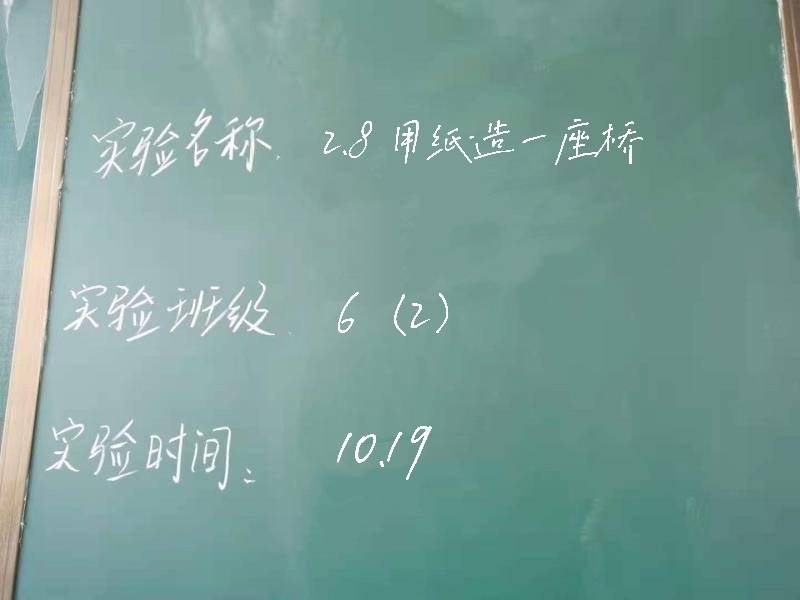 实验名称. 2.8 用纸造一座桥
实验班级. 6 (2)
实验时间: 10.19